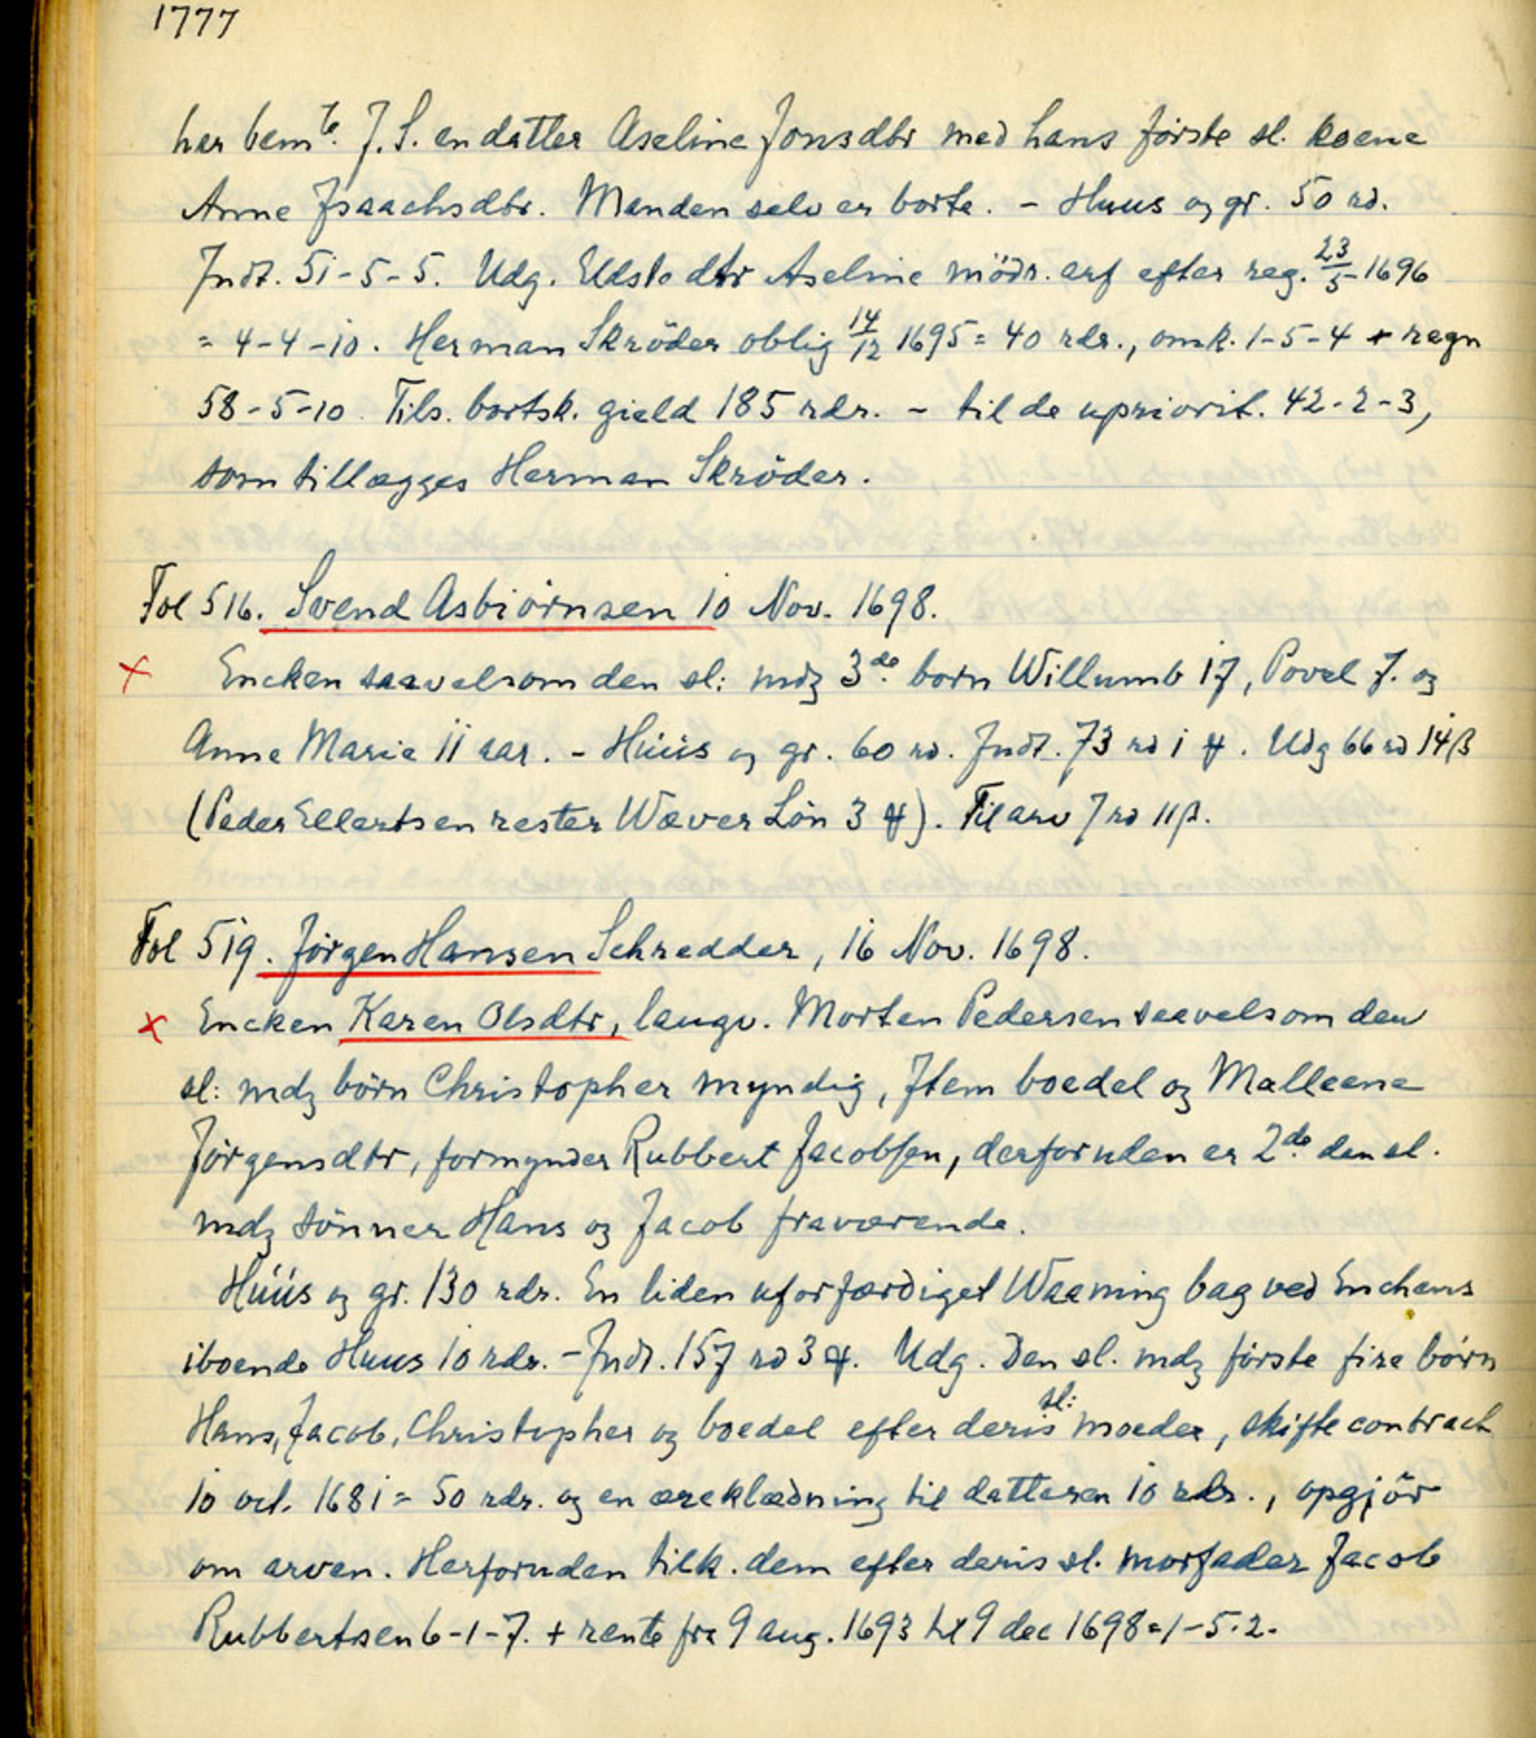 1777
har bem^te. J. S. en datter Aseline Jonsdtr med hans förste sl. koene
Anne Isaachsdtr. Manden selv er borte. - Huus og gr. 50 rd.
Indt. 51-5-5. Udg. dtr Aseline mödr. arf efter reg. 23/5-1696
= 4-4-10. Herman Skröder oblig 14/12 1695 = 40 rdr., omk. 1-5-4 + regn
58-5-10. Tils. bortsk. gield 185 rdr. - til de upriorit. 42-2-3,
som tillægges Herman Skröder.
Fol 516. Svend Asbiörnsen 10 Nov. 1698.
x Encken saavelsom den sl: mdz 3^de. born Willumb 17, Povel 7. og
Anne Marie 11 aar. - Húús og gr. 60 rd. Indt. 73 rd 1 ꝟ. Udg 66 rd 14 β
(Peder Ellertsen rester Wæver Lön 3 ꝟ). Til arv 7 rd 11 β.
Fol 519. Jörgen Hansen Schredder, 16 Nov. 1698.
x Encken Karen Olsdtr, laugv. Morten Pedersen saavelsom den
sl: mdz börn Christopher myndig, Item boedel og Malleene
Jörgensdtr, formynder Rubbert Jacobsen, derforuden er 2^de. den sl.
mdz sönner Hans og Jacob fraværende.
Húús og gr. 130 rdr. En liden uforfærdiget Waaning bag ved Enchens
iboende Huus 10 rdr. - Indt. 157 rd 3 ꝟ. Udg. Den sl. mdz förste fire börn
Hans, Jacob, Christopher og boedel efter deris sl: moeder, skifte contract
10 oct. 1681 = 50 rdr. og en æreklædning til datteren 10 rdr., opgjör
om arven. Herforuden tilk. dem efter deris sl. morfader Jacob
Rubbertsen 6-1-7. + rente fra 9 aug. 1693 til 9 dec 1698 = 1-5-2.